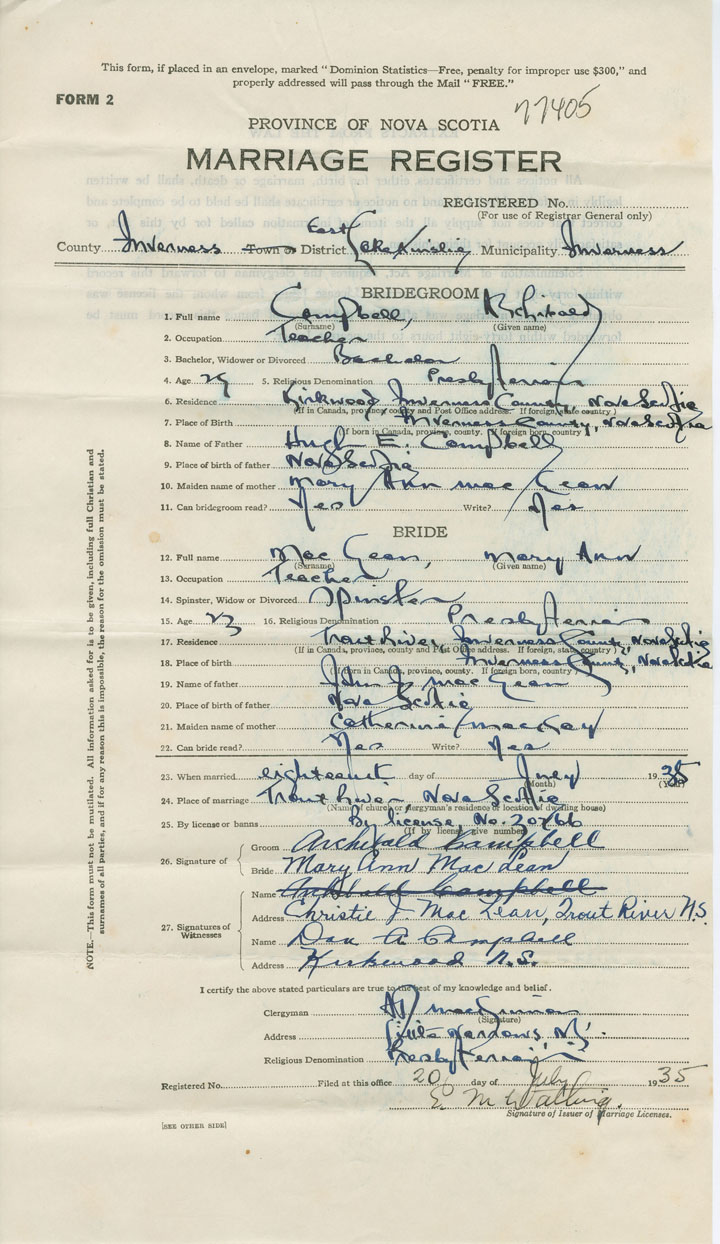 This form, if placed in an envelope, marked "Dominion Statistics—Free, penalty for improper use $300," and
properly addressed will pass through the Mail "FREE."
FORM 2
77405
PROVINCE OF NOVA SCOTIA
MARRIAGE REGISTER
REGISTERED No.
(For use of Registrar General only)
County Inverness Town or District East Lake Ainslie Municipality Inverness
BRIDEGROOM
1. Full name Campbell, Archibald
(Surname) (Given name)
2. Occupation Teacher
3. Bachelor, Widower or Divorced Bachelor
4. Age 29 5. Religious Denomination Presbyterian
6. Residence Kirkwood, Inverness County, Nova Scotia
(If in Canada, province, county and Post Office address. If foreign, state country)
7. Place of Birth Inverness County, Nova Scotia
(If born in Canada, province, county. If foreign born, country)
8. Name of Father Hugh E. Campbell
9. Place of birth of father Nova Scotia
10. Maiden name of mother Mary Ann Mac Lean
11. Can bridegroom read? Yes Write? Yes
BRIDE
12. Full name Mac Lean, Mary Ann
(Surname) (Given name)
13. Occupation Teacher
14. Spinster, Widow or Divorced Spinster
15. Age 23 16. Religious Denomination Presbyterian
17. Residence Trout River, Inverness County, Nova Scotia
(If in Canada, province, county and Post Office address. If foreign, state country)
18. Place of birth Inverness County, Nova Scotia
(If born in Canada, province, county. If foreign born, country)
19. Name of father John J. Mac Lean
20. Place of birth of father Nova Scotia
21. Maiden name of mother Catherine MacKay
22. Can bride read? Yes Write? Yes
23. When married eighteent day of July 1935
(Month) (Year)
24. Place of marriage Trout River Nova Scotia
(Name of church or clergyman's residence or location of dwelling house)
25. By license or banns By license, No. 20766
(If by license give number)
26. Signature of
Groom Archibald Campbell
Bride Mary Ann MacLean
27. Signatures of Witnesses
Name Archibald Campbell
Address Christie J. MacLean, Trout River N.S.
Name Dan A. Campbell
Address Kirkwood N.S.
I certify the above stated particulars are true to the best of my knowledge and belief.
Clergyman MacKinnon
(Signature)
Address Little Narrows, N.S.
Religious Denomination Presbyterian
Registered No. Filed at this office 20 day of July 1935
E. M.
Signature of Issuer of Marriage Licenses.
[SEE OTHER SIDE]
NOTE.—This form must not be mutilated. All information asked for is to be given, including full Christian and
surnames of all parties, and if for any reason this is impossible, the reason for the omission must be stated.